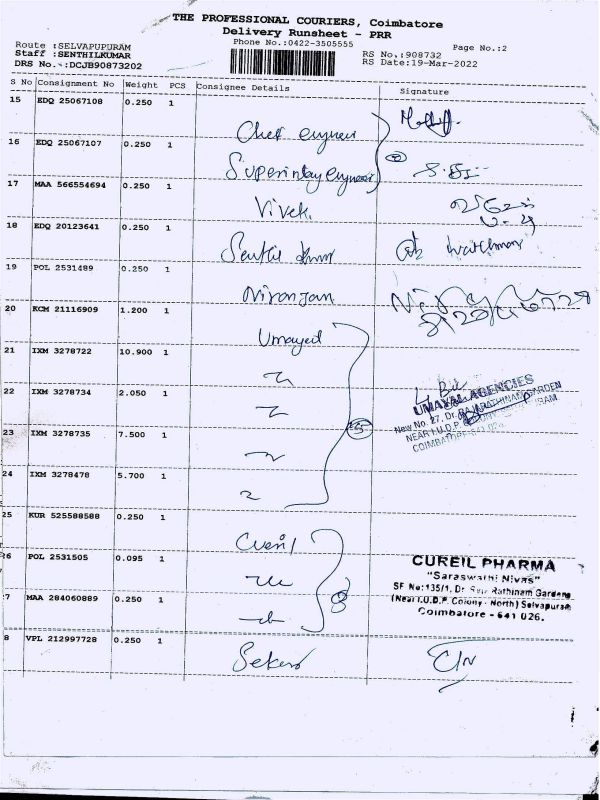 THE PROFESSIONAL COURIERS, Coimbatore
Delivery Runsheet - PRR
Phone No.:0422-3505555
Page No.:2
Route :SELVAPUPURAM
Staff :SENTHILKUMAR
DRS No.:DCJB90873202
RS No.:908732
RS Date:19-Mar-2022
S No Consignment No Weight PCS Consignee Details Signature
15 EDQ 25067108 0.250 1
Chef engineer
16 EDQ 25067107 0.250 1
17 MAA 566554694 0.250 1
Vivek
18 EDQ 20123641 0.250 1
watchman
19 POL 2531489 0.250 1
Niranjan
20 KCM 21116909 1.200 1
Umayal
21 IXM 3278722 10.900 1
22 IXM 3278734 2.050 1
UMAYAL AGENCIES
New No. 27, Dr. RAJARATHINAM GARDEN
NEAR I.U.D.P.
COIMBATORE-641 026.
23 IXM 3278735 7.500 1
24 IXM 3278478 5.700 1
25 KUR 525588588 0.250 1
6 POL 2531505 0.095 1
CUREIL PHARMA
"Saraswathi Nivas"
SF No:135/1, Dr. Raja Rathinam Gardens
(Near I.U.D.P. Colony - North) Selvapuram
Coimbatore - 641 026.
7 MAA 284060889 0.250 1
8 VPL 212997728 0.250 1